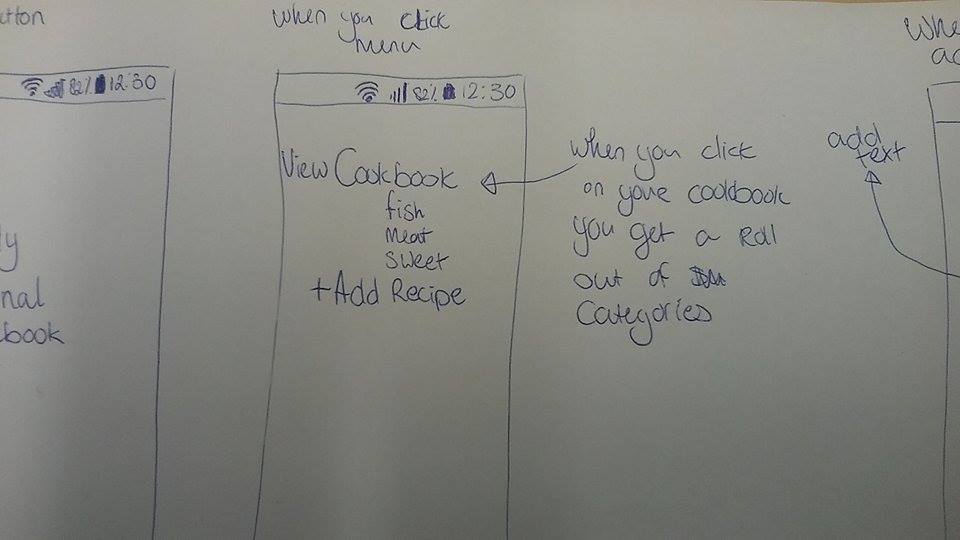 utton
82% 12:30
y
nal
book
when you click
menu
82% 12:30
View Cookbook
fish
meat
sweet
+Add Recipe
when you click
on youre cookbook
you get a Roll
out of
Categories
Whe
ad
add
text